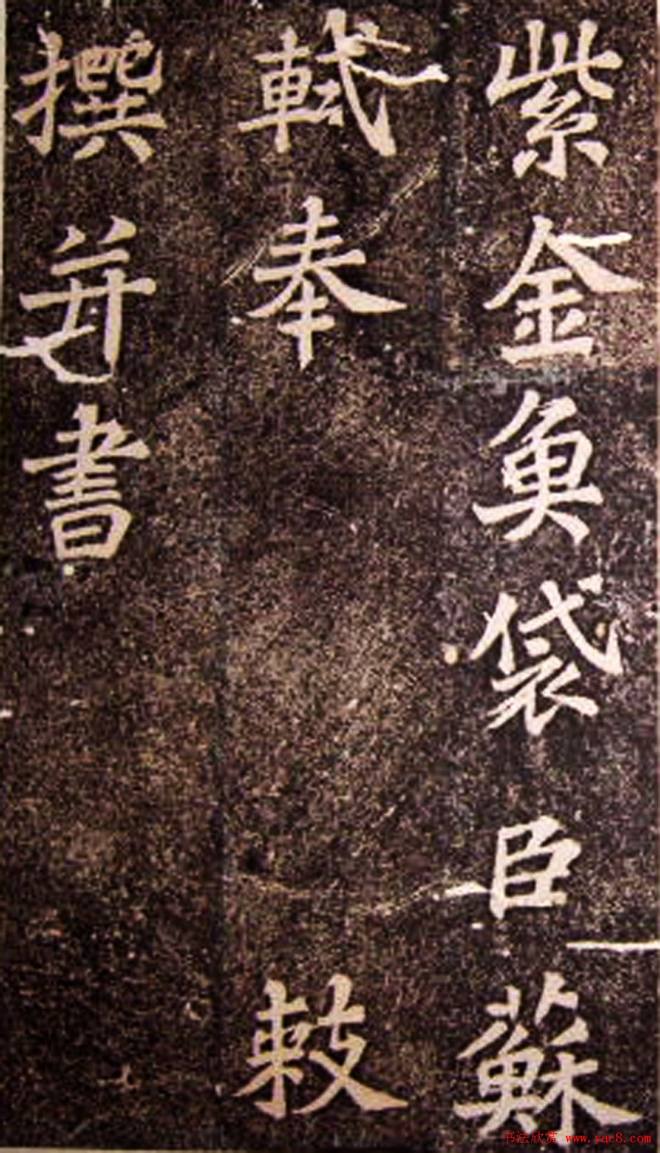 紫金魚袋臣蘇
軾奉敕
撰并書
书法欣赏 www.yac8.com